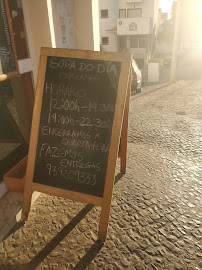 SOPA DO DIA
HORÁRIO
12:00h-14:30h
19:00h-22:30h
ENCERRAMOS A
QUARTA FEIRA
FAZEMOS
ENTREGAS